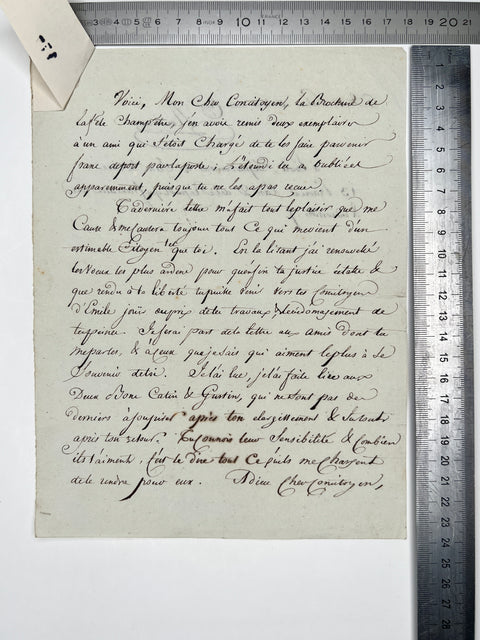 Voici, Mon Cher Concitoyen, la Brochure de
la fete Champêtre, j'en avois remis deux exemplaires
à un ami qui s'étoit Chargé de te les faire parvenir
franc de port par la poste; l'étourdi l'a oublié et
apparemment, puisque tu ne les a pas recue.
Ta derniere lettre m'a fait tout le plaisir que me
Cause & me Causera toujours tout Ce qui me vient d'un
estimable Citoyen tel que toi. En la lisant j'ai renouvellé
les voeux les plus ardens pour qu'enfin ta justice éclate &
que rendu à la liberté tu puisse venir vers tes Concitoyens
d'Emile jouir auprès de tes travaux & dédomagement de
tes peines. Je ferai part de ta lettre aux amis dont tu
me parles, & à Ceux que je sais qui aiment le plus à Se
Souvenir de toi. Je l'ai lue, je l'ai faite lire aux
Deux Bone Catin & Guston, qui ne Sont pas des
derniers à soupirer après ton élargissement & Surtout
après ton retour. Tu Connois leur Sensibilité & Combien
ils t'aiment, C'est te dire tout Ce qu'ils me Chargent
de te rendre pour eux. Adieu Cher Concitoyen,